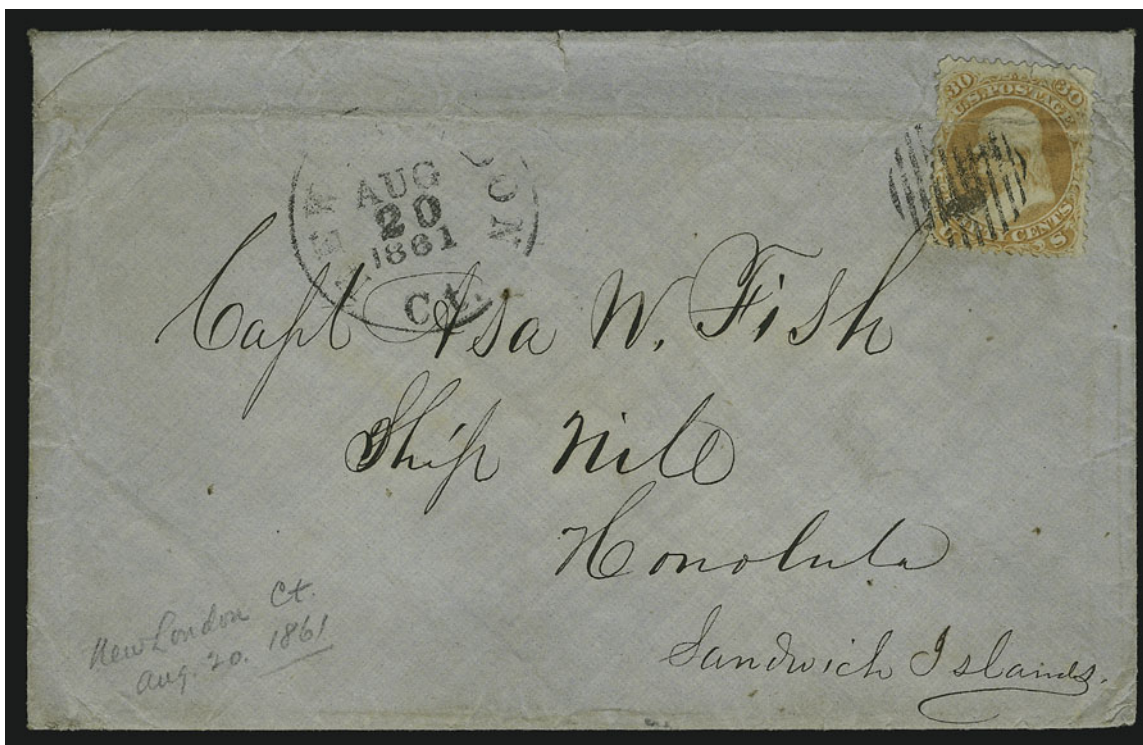 30 30
U.S. POSTAGE
CENTS
U S
NEW LONDON
AUG
20
1861
CT.
Capt Asa W. Fish
Ship Nile
Honolulu
Sandwich Islands.
New London Ct.
Aug. 20. 1861